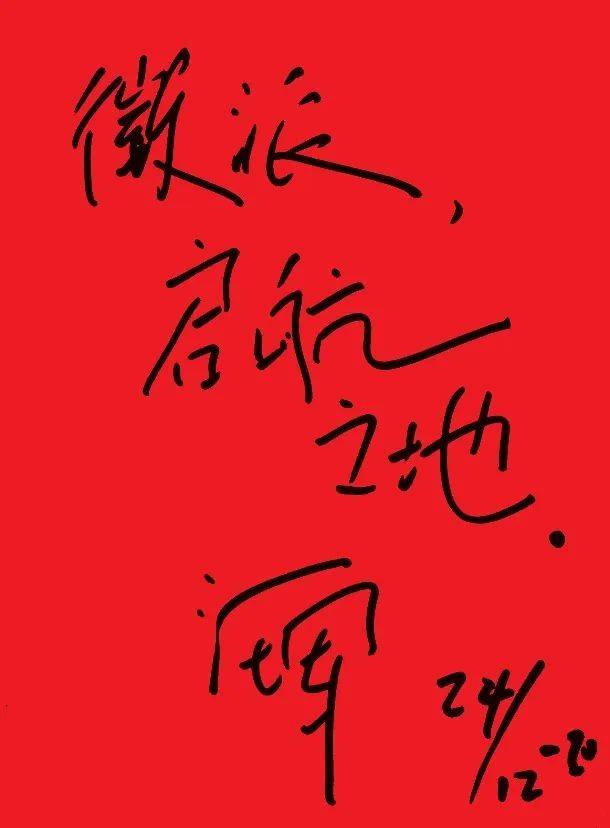 徽派，
启航
之地.
24/12-20